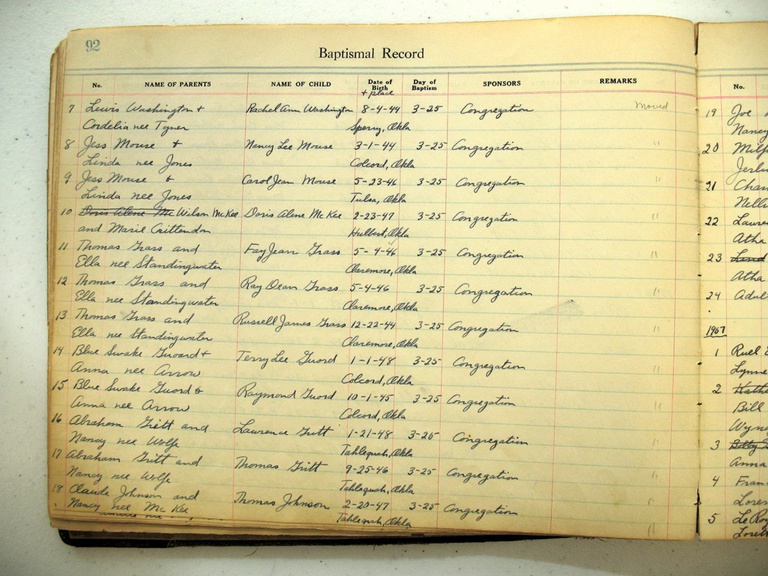 92
Baptismal Record
No. NAME OF PARENTS NAME OF CHILD Date of Birth + place Day of Baptism SPONSORS REMARKS No.
7 Lewis Washington + Rachel Ann Washington 8-4-44 3-25 Congregation Moved
Cordelia nee Tyner Sperry, Okla
8 Jess Mouse + Nancy Lee Mouse 3-1-44 3-25 Congregation "
Linda nee Jones Colcord, Okla
9 Jess Mouse + Carol Jean Mouse 5-23-46 3-25 Congregation "
Linda nee Jones Tulsa, Okla
10 Doris Alene Mc Wilson McKee Doris Alene McKee 2-23-47 3-25 Congregation "
and Marie Crittendon Hulbert, Okla
11 Thomas Grass and Fay Jean Grass 5-4-46 3-25 Congregation "
Ella nee Standingwater Claremore, Okla
12 Thomas Grass and Ray Dean Grass 5-4-46 3-25 Congregation "
Ella nee Standingwater Claremore, Okla
13 Thomas Grass and Russell James Grass 12-22-44 3-25 Congregation "
Ella nee Standingwater Claremore, Okla
14 Blue Swake Guord + Terry Lee Guord 1-1-48 3-25 Congregation "
Anna nee Arrow Colcord, Okla
15 Blue Swake Guord + Raymond Guord 10-1-45 3-25 Congregation "
Anna nee Arrow Colcord, Okla
16 Abraham Gritt and Lawrence Gritt 1-21-48 3-25 Congregation "
Nancy nee Wolfe Tahlequah, Okla
17 Abraham Gritt and Thomas Gritt 9-25-46 3-25 Congregation "
Nancy nee Wolfe Tahlequah, Okla
18 Claude Johnson and Thomas Johnson 2-20-47 3-25 Congregation "
Nancy nee McKee Tahlequah, Okla "
19 Joe
Nancy
20 Milf
Jerlin
21 Char
Nelli
22 Lawre
Atha
23
Atha
24 Adul
1957
1 Ruel
Lynne
2 Kathe
Bill
Wyn
3 Billy
Anna
4 Fran
Loren
5 LeRoy
Loret